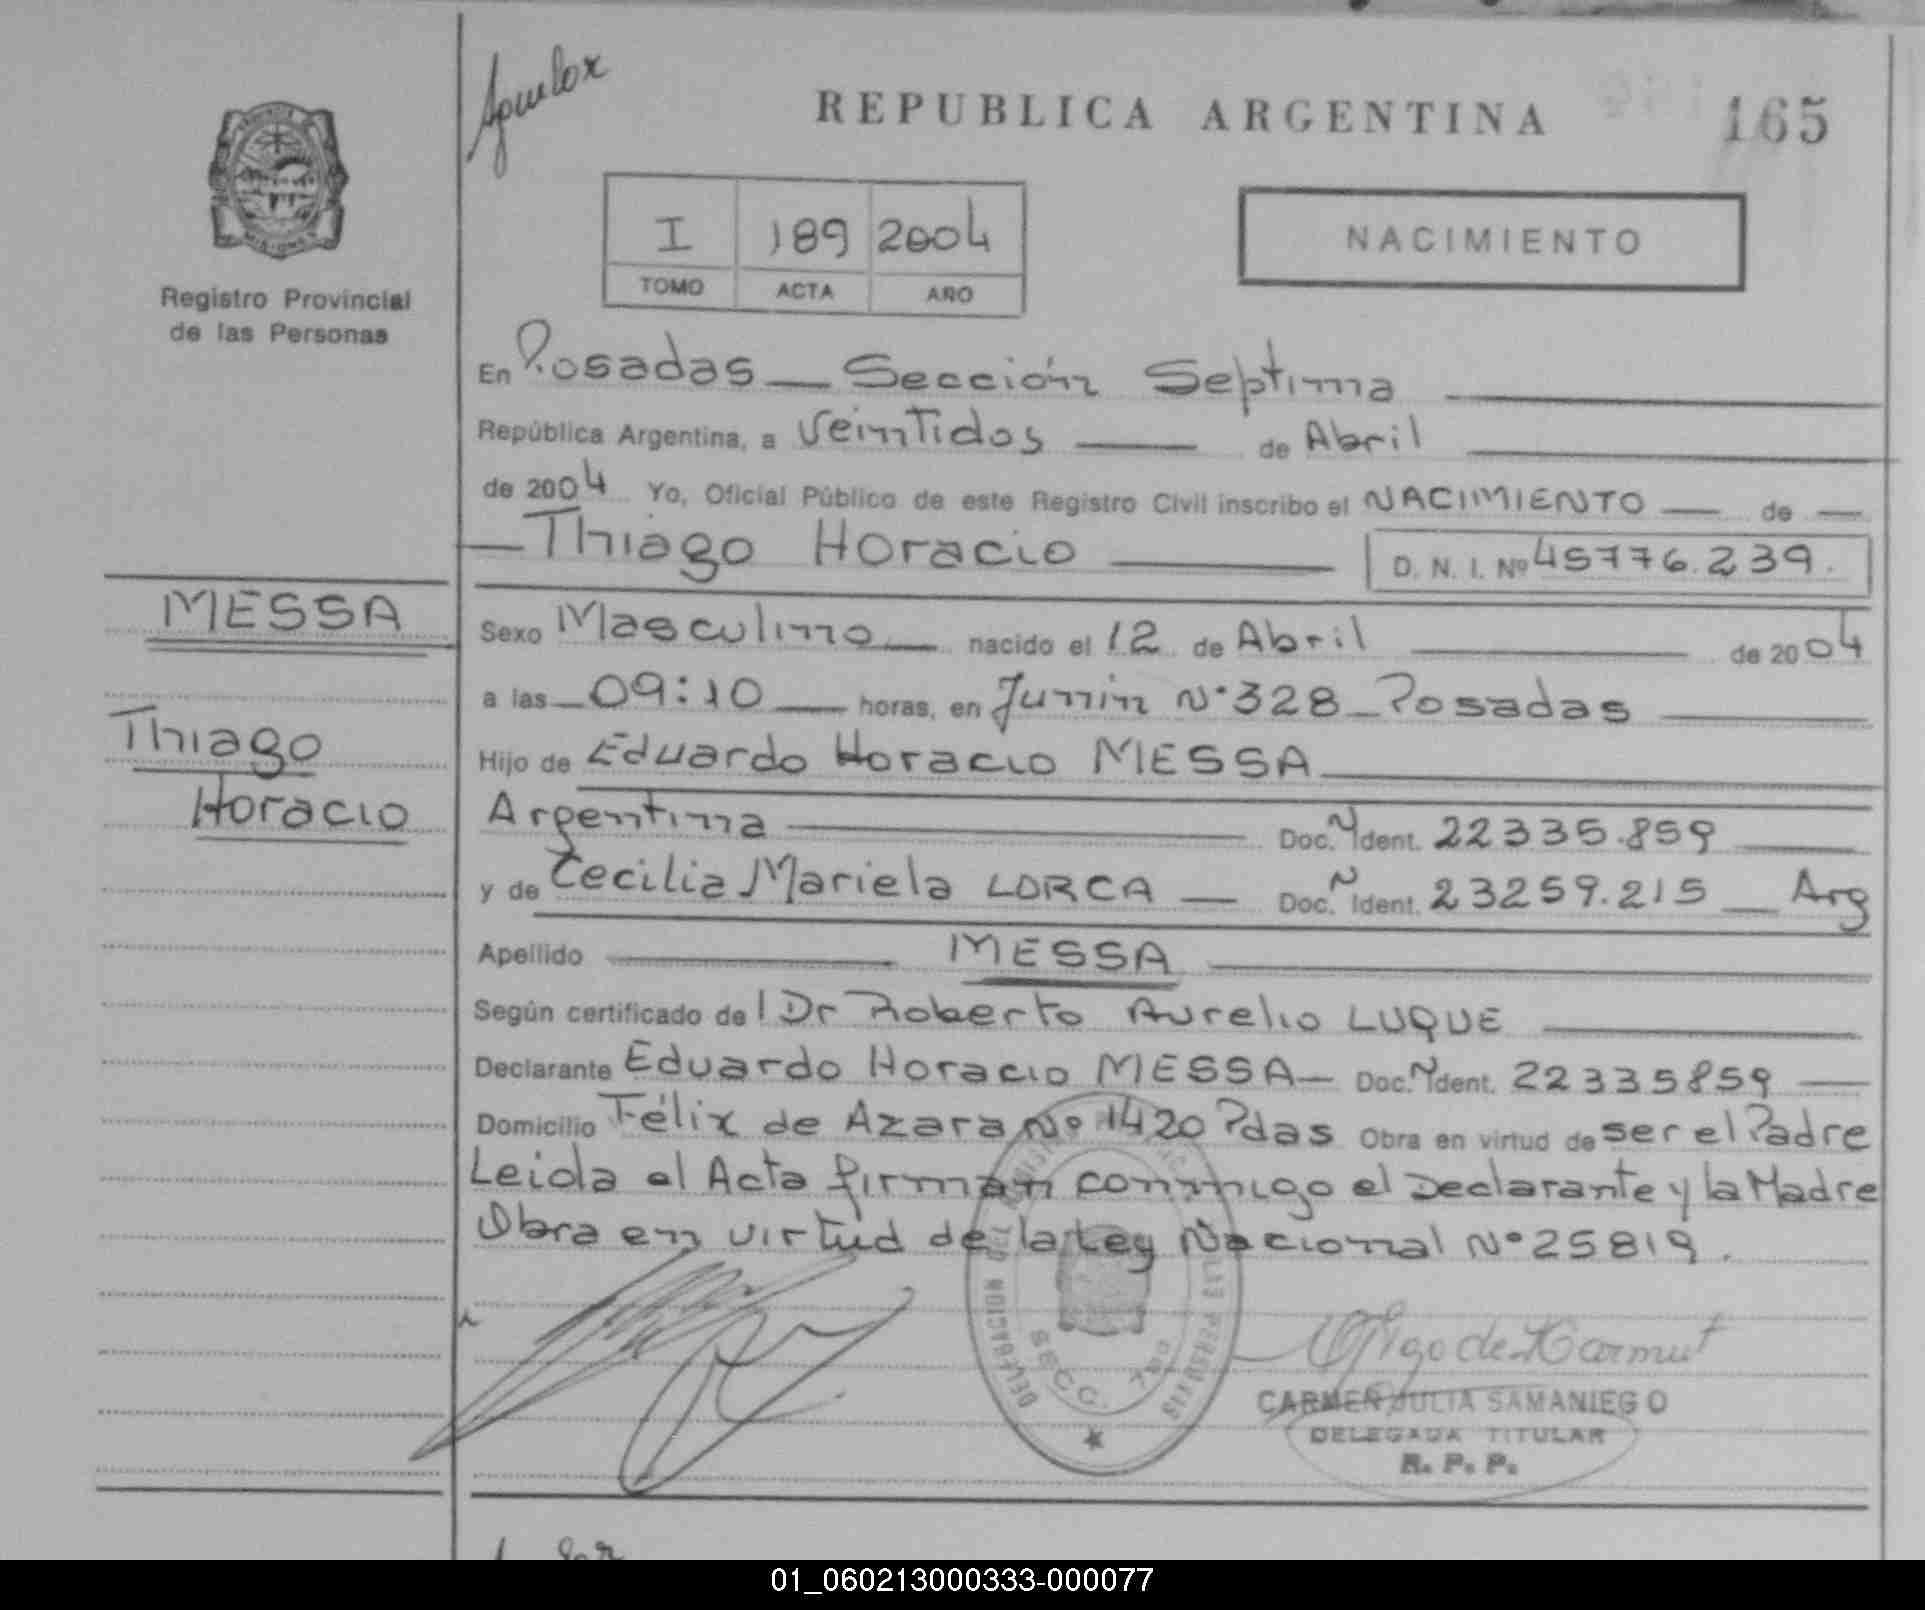 REPUBLICA ARGENTINA
165
I 189 2004
TOMO ACTA AÑO
NACIMIENTO
MISIONES
Registro Provincial
de las Personas
En Posadas — Sección Septima
República Argentina, a Veintidos de Abril
de 2004 Yo, Oficial Público de este Registro Civil inscribo el NACIMIENTO — de —
Thiago Horacio D. N. I. Nº 45776.239.
MESSA
Thiago
Horacio
Sexo Masculino nacido el 12 de Abril de 2004
a las 09:10 horas, en Junin Nº 328 _ Posadas
Hijo de Eduardo Horacio MESSA
Argentina Doc. N Ident. 22335.859
y de Cecilia Mariela LORCA — Doc. N Ident. 23259.215 — Arg
Apellido MESSA
Según certificado del Dr Roberto Aurelio LUQUE
Declarante Eduardo Horacio MESSA — Doc. N Ident. 22335859
Domicilio Félix de Azara Nº 1420 Pdas Obra en virtud de ser el Padre
Leida el Acta firman conmigo el Declarante y la Madre
Obra en virtud de la Ley Nacional Nº 25819.
SECC. 7ma
CARMEN JULIA SAMANIEGO
DELEGADA TITULAR
R. P. P.
01_060213000333-000077